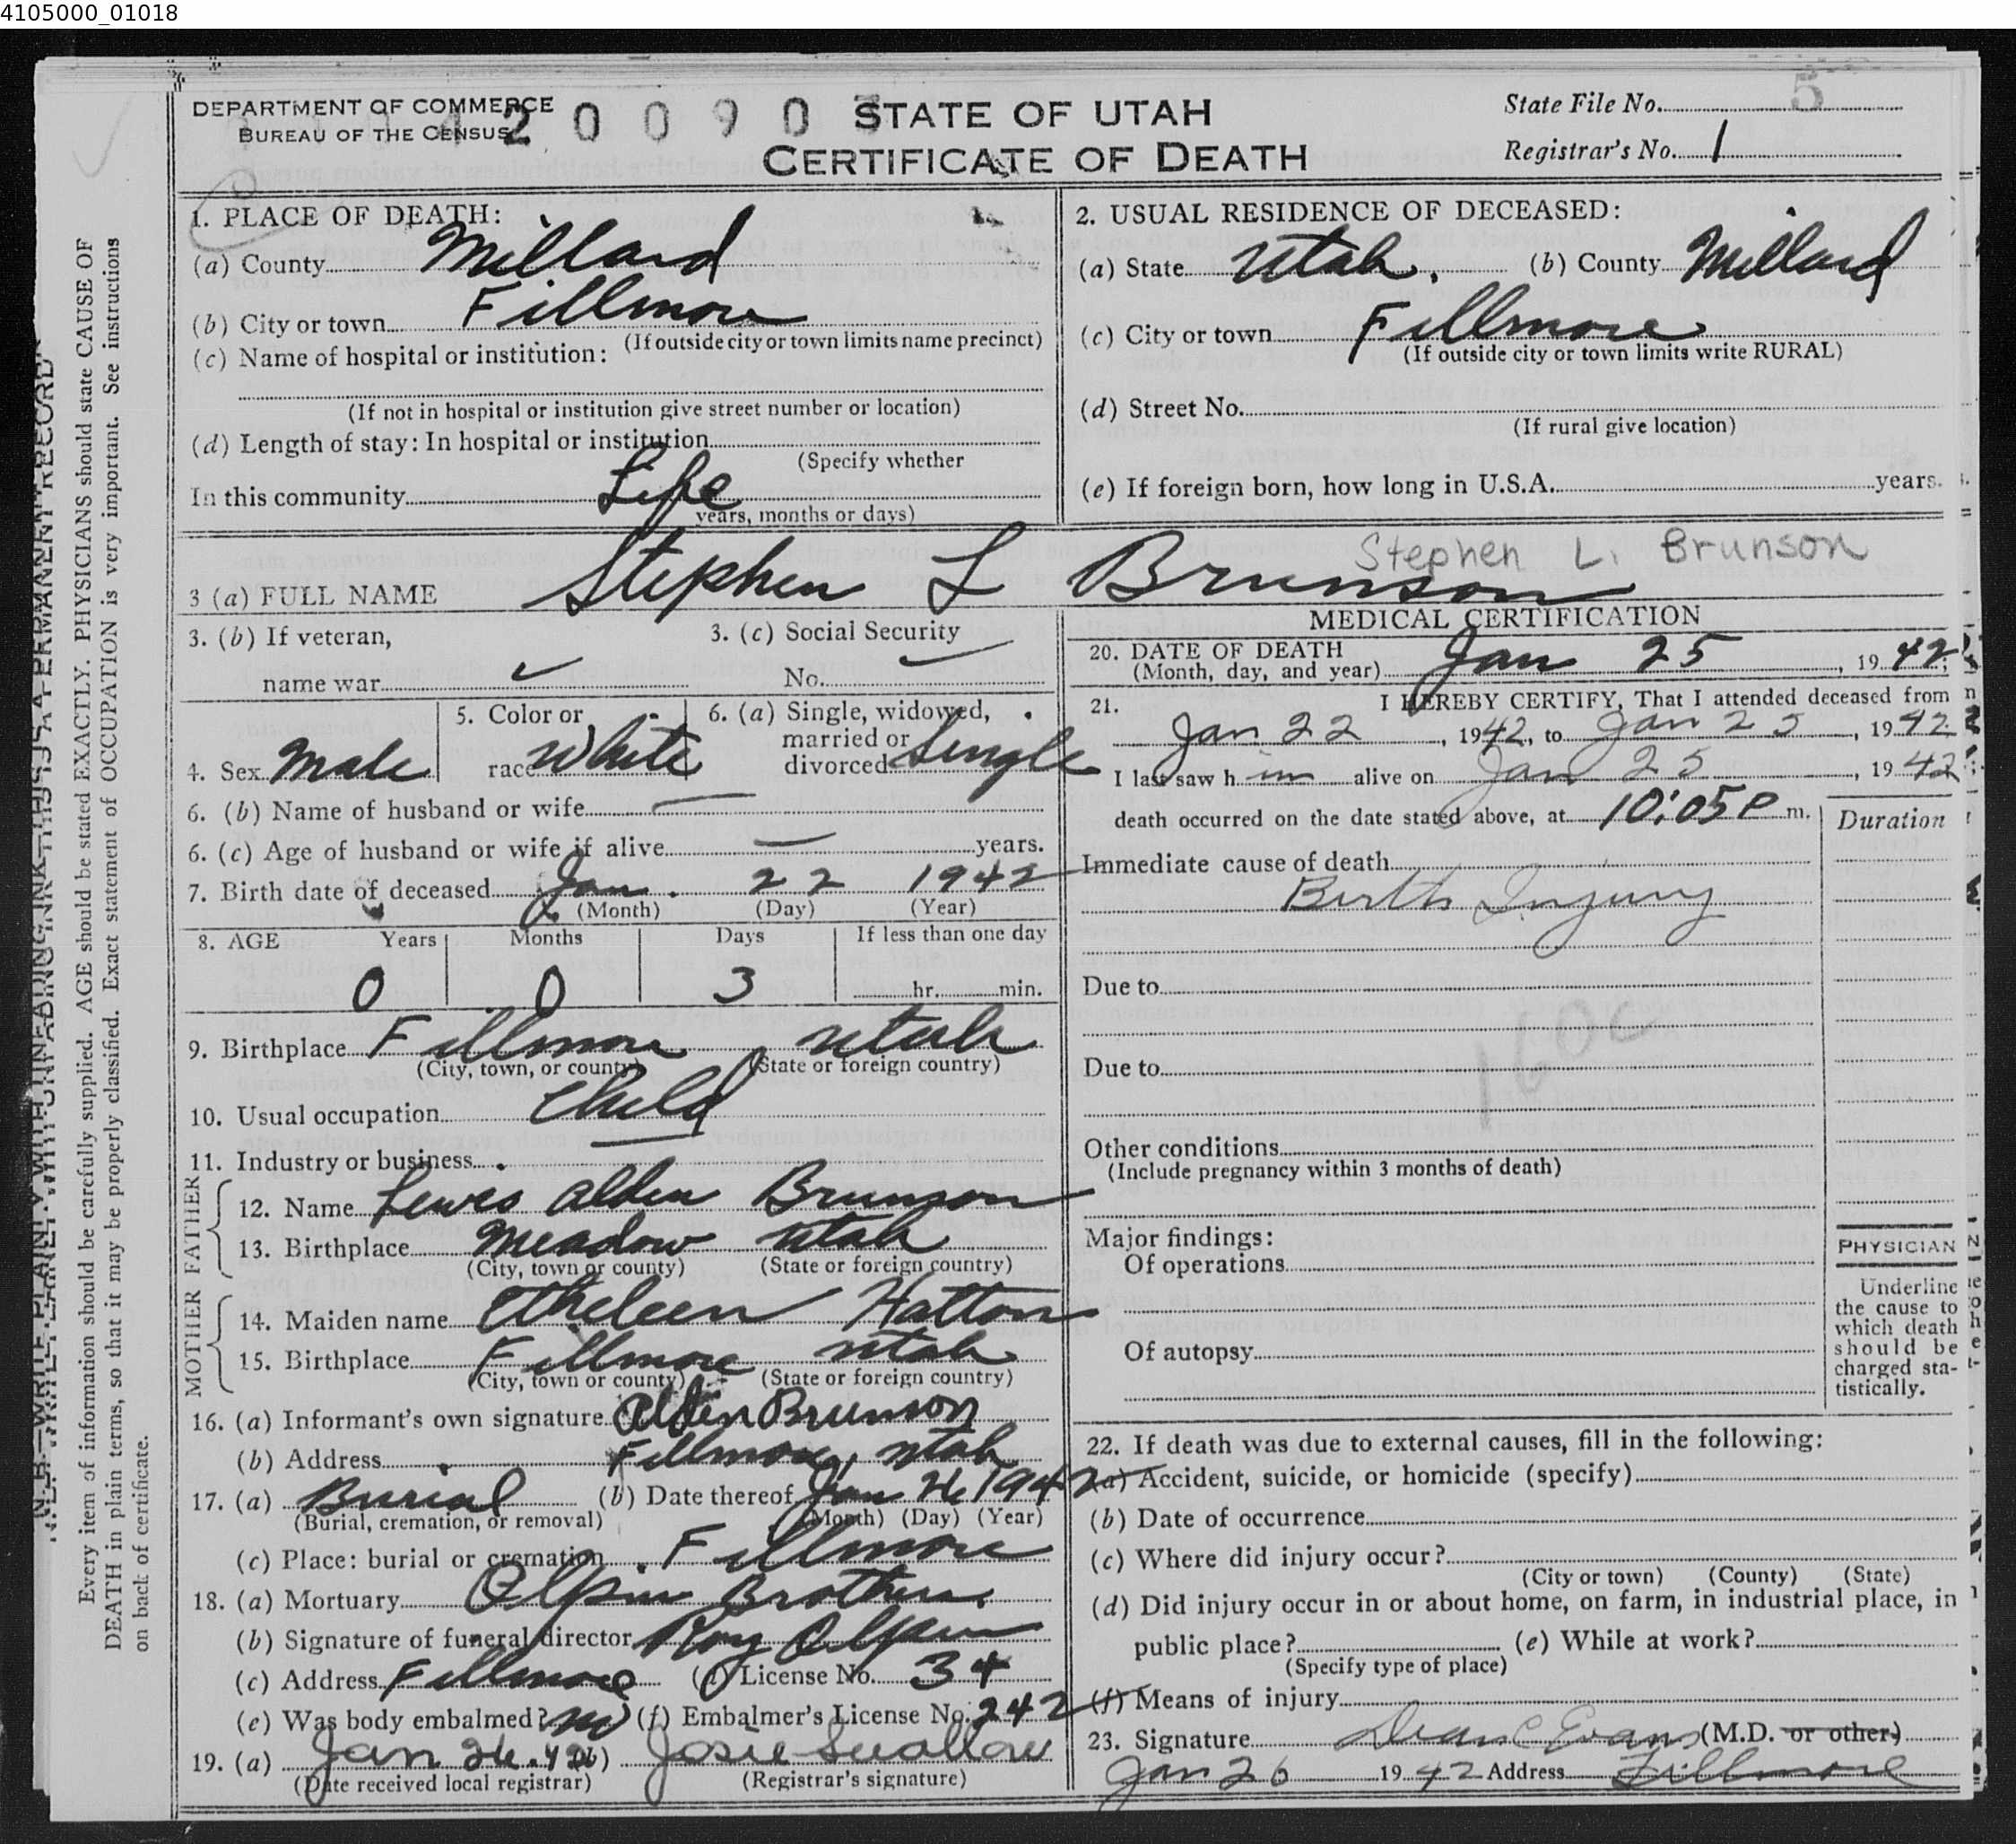 4105000_01018
DEPARTMENT OF COMMERCE
BUREAU OF THE CENSUS
4 2 0 0 9 0
STATE OF UTAH
CERTIFICATE OF DEATH
State File No. 5
Registrar's No. 1
N. B.—WRITE PLAINLY WITH UNFADING INK—THIS IS A PERMANENT RECORD
Every item of information should be carefully supplied. AGE should be stated EXACTLY. PHYSICIANS should state CAUSE OF
DEATH in plain terms, so that it may be properly classified. Exact statement of OCCUPATION is very important. See instructions
on back of certificate.
1. PLACE OF DEATH:
(a) County Millard
(b) City or town Fillmore
(If outside city or town limits name precinct)
(c) Name of hospital or institution:
(If not in hospital or institution give street number or location)
(d) Length of stay: In hospital or institution
(Specify whether
In this community Life
years, months or days)
2. USUAL RESIDENCE OF DECEASED:
(a) State Utah. (b) County Millard
(c) City or town Fillmore
(If outside city or town limits write RURAL)
(d) Street No.
(If rural give location)
(e) If foreign born, how long in U.S.A. years.
3 (a) FULL NAME Stephen L Brunson
Stephen L. Brunson
3. (b) If veteran,
name war
3. (c) Social Security
No.
4. Sex Male
5. Color or
race White
6. (a) Single, widowed,
married or
divorced Single
6. (b) Name of husband or wife —
6. (c) Age of husband or wife if alive — years.
7. Birth date of deceased Jan. 22 1942
(Month) (Day) (Year)
8. AGE Years Months Days If less than one day
0 0 3 hr. min.
9. Birthplace Fillmore Utah
(City, town, or county) (State or foreign country)
10. Usual occupation Child
11. Industry or business
FATHER
12. Name Lewis Alden Brunson
13. Birthplace Meadow Utah
(City, town or county) (State or foreign country)
MOTHER
14. Maiden name Etheleen Hatton
15. Birthplace Fillmore Utah
(City, town or county) (State or foreign country)
16. (a) Informant's own signature Alden Brunson
(b) Address Fillmore, Utah
17. (a) Burial (b) Date thereof Jan 26 1942
(Burial, cremation, or removal) (Month) (Day) (Year)
(c) Place: burial or cremation Fillmore
18. (a) Mortuary Olpin Brothers
(b) Signature of funeral director Roy Olpin
(c) Address Fillmore (d) License No. 34
(e) Was body embalmed? no (f) Embalmer's License No. 242
19. (a) Jan 26. 42 (b) Josie Swallow
(Date received local registrar) (Registrar's signature)
MEDICAL CERTIFICATION
20. DATE OF DEATH
(Month, day, and year) Jan 25, 1942
21. I HEREBY CERTIFY, That I attended deceased from
Jan 22, 1942, to Jan 25, 1942
I last saw him alive on Jan 25, 1942
death occurred on the date stated above, at 10:05 P m.
Duration
Immediate cause of death
Birth Injury
Due to
160c
Due to
Other conditions
(Include pregnancy within 3 months of death)
Major findings:
Of operations
Of autopsy
PHYSICIAN
Underline
the cause to
which death
should be
charged sta-
tistically.
22. If death was due to external causes, fill in the following:
(a) Accident, suicide, or homicide (specify)
(b) Date of occurrence
(c) Where did injury occur?
(City or town) (County) (State)
(d) Did injury occur in or about home, on farm, in industrial place, in
public place? (e) While at work?
(Specify type of place)
(f) Means of injury
23. Signature Dean C Evans (M.D. or other)
Jan 26 1942 Address Fillmore